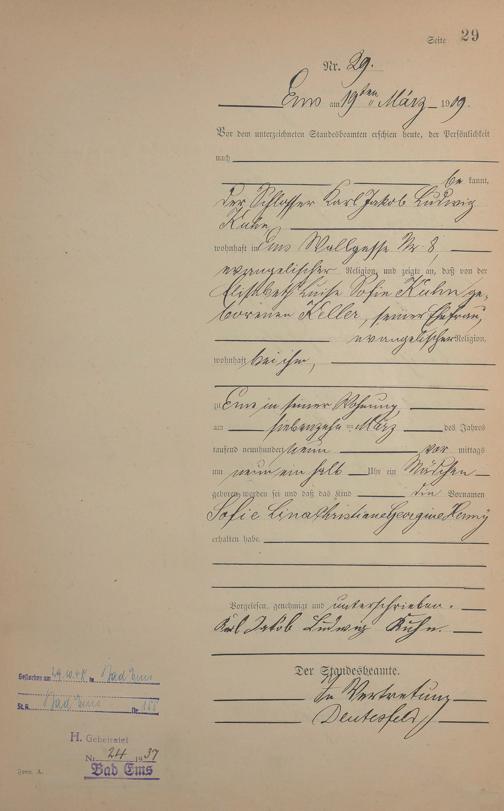 Seite 29
Nr. 29.
Ems am 19ten März 1909.
Vor dem unterzeichneten Standesbeamten erschien heute, der Persönlichkeit
nach
be kannt,
der Schlosser Karl Jakob Ludwig
Kuhn
wohnhaft in Ems Wallgasse Nr 8,
evangelischer Religion, und zeigte an, daß von der
Elisabeth Luise Sofie Kuhn ge-
borenen Keller, seiner Ehefrau,
evangelischer Religion,
wohnhaft bei ihm,
zu Ems in seiner Wohnung,
am siebenzehn März des Jahres
tausend neunhundert neun vor mittags
um neun ein halb Uhr ein Mädchen
geboren worden sei und daß das Kind die Vornamen
Sofie Lina Christiane Georgine Henny
erhalten habe.
Vorgelesen, genehmigt und unterschrieben.
Karl Jakob Ludwig Kuhn.
Der Standesbeamte.
In Vertretung
Gestorben am in Bad Ems
St. A. Bad Ems Nr.
H. Geheiratet
Nr. 24 1937
Bad Ems
Form. A.